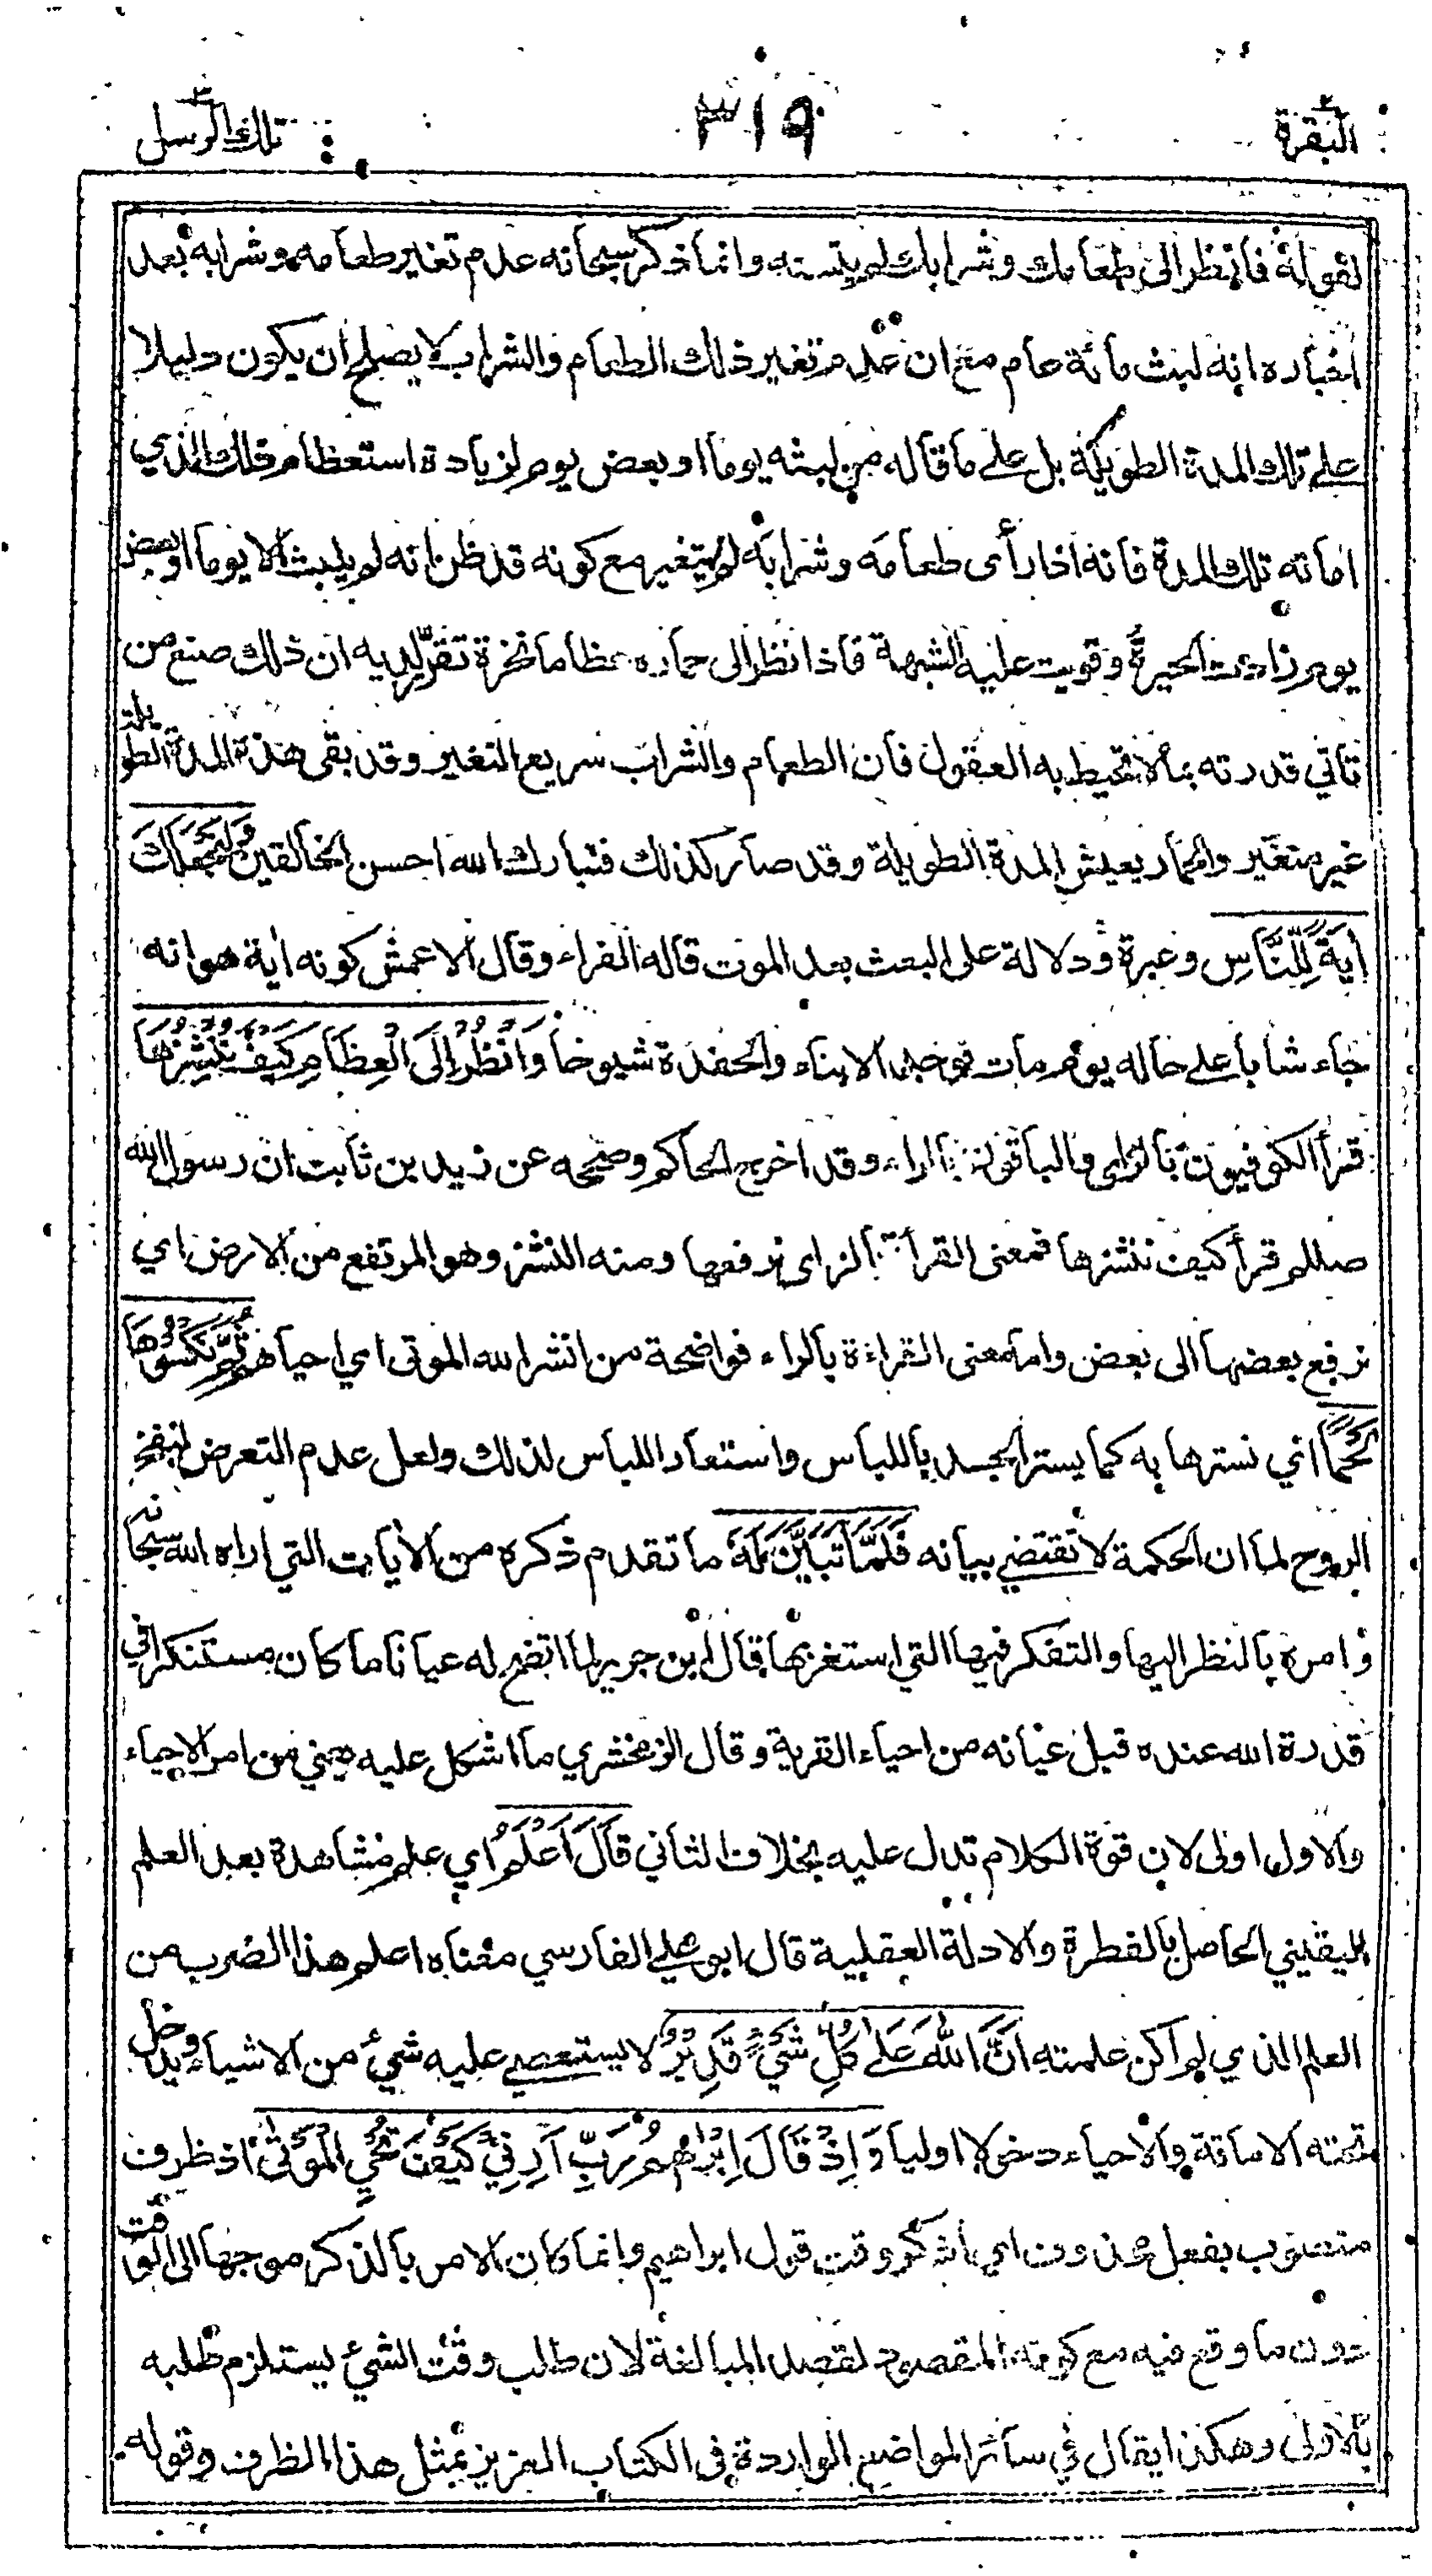 البقرة ٣١٩ تلك الرسل ٣
لقوله فانظر الى طعامك وشرابك لم يتسنه وانما ذكر سبحانه عدم تغير طعامه وشرابه بعد
اخباره انه لبث مائة عام مع ان عدم تغير ذلك الطعام والشراب لا يصلح ان يكون دليلا
على تلك المدة الطويلة بل على ما قاله من لبثه يوما او بعض يوم لزيادة استعظام ذلك الذي
اماته تلك المدة فانه اذا رأى طعامه وشرابه لم يتغير مع كونه قد ظن انه لم يلبث الا يوما او بعض
يوم زادت الحيرة وقويت عليه الشبهة فاذا نظر الى حماره عظاما نخرة تقرر لديه ان ذلك صنع من
تاتي قدرته بما لا تحيط به العقول فان الطعام والشراب سريع التغير وقد بقى هذه المدة الطويلة
غير متغير والحمار يعيش المدة الطويلة وقد صار كذلك فتبارك الله احسن الخالقين وَلِنَجْعَلَكَ
اٰيَةً لِّلنَّاسِ وعبرة ودلالة على البعث بعد الموت قاله الفراء وقال الاعمش كونه اية هو انه
جاء شابا على حاله يوم مات فوجد الابناء والحفدة شيوخا وَانْظُرْ اِلَى الْعِظَامِ كَيْفَ نُنْشِزُهَا
قرأ الكوفيون بالزاى والباقون بالراء وقد اخرج الحاكم وصححه عن زيد بن ثابت ان رسول الله
صللم قرأ كيف ننشزها فمعنى القرأة بالزاى نرفعها ومنه النشز وهو المرتفع من الارض اي
نرفع بعضها الى بعض واما معنى القراءة بالراء فواضحة من انشر الله الموتى اي احياهم ثُمَّ نَكْسُوْهَا
لَحْمًا اي نسترها به كما يستر الجسد باللباس واستعار اللباس لذلك ولعل عدم التعرض لنفخ
الروح لما ان الحكمة لا تقتضي بيانه فَلَمَّا تَبَيَّنَ لَهٗ ما تقدم ذكره من الأيات التي اراه الله سبحانه
وامره بالنظر اليها والتفكر فيها التي استغربها قال ابن جرير لما اتضح له عيانا ما كان مستنكرا في
قدرة الله عنده قبل عيانه من احياء القرية وقال الزمخشري ما اشكل عليه يعني من امر الاحياء
والاول اولى لان قوة الكلام تدل عليه بخلاف الثاني قَالَ اَعْلَمُ اي علم مشاهدة بعد العلم
اليقيني الحاصل بالفطرة والادلة العقلية قال ابو علي الفارسي معناه اعلم هذا الضرب من
العلم الذي لم اكن علمته اَنَّ اللّٰهَ عَلٰى كُلِّ شَيْءٍ قَدِيْرٌ لا يستعصي عليه شيئ من الاشياء ويدخل
تحته الاماتة والاحياء دخولا اوليا وَاِذْ قَالَ اِبْرٰهٖمُ رَبِّ اَرِنِيْ كَيْفَ تُحْيِ الْمَوْتٰى اذ ظرف
منصوب بفعل محذوف اي اذكر وقت قول ابراهيم وانما كان الامر بالذكر موجها الى الوقت
دون ما وقع فيه مع كونه المقصود لقصد المبالغة لان طلب وقت الشيئ يستلزم طلبه
بالاولى وهكذا يقال في سائر المواضع الواردة في الكتاب العزيز بمثل هذا الظرف وقوله